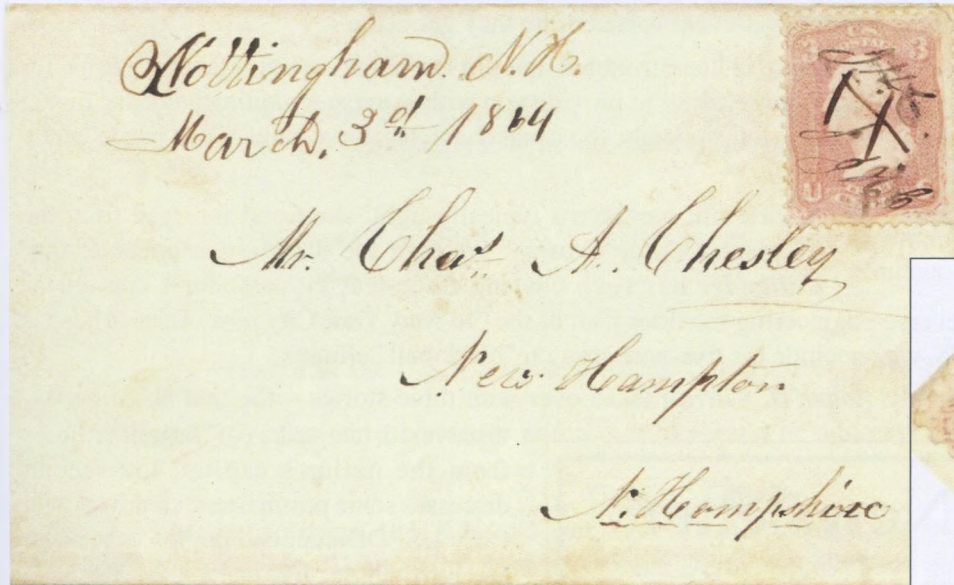 Nottingham. N.H.
March, 3d 1864
3 3
U
Mr. Chas A. Chesley
New Hampton
N. Hampshire